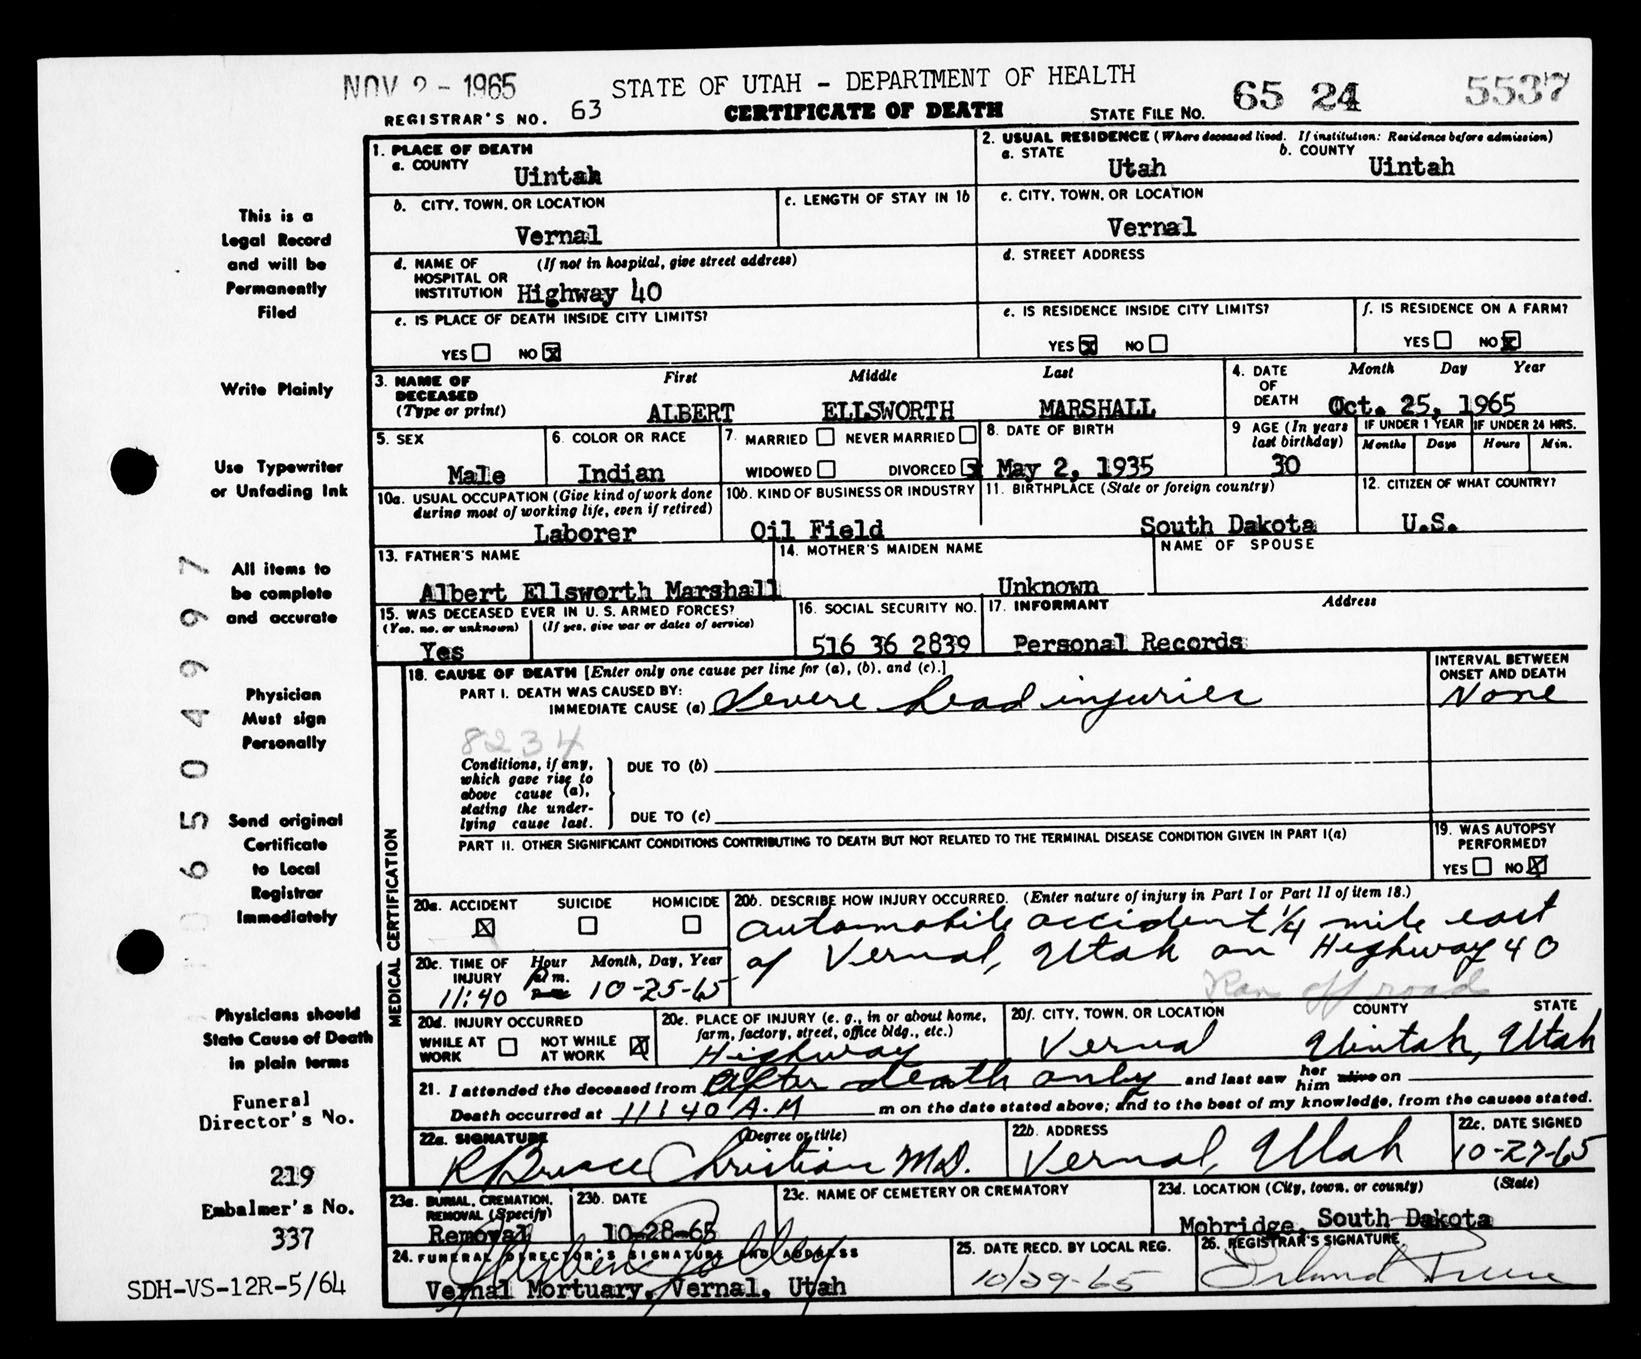 NOV 2 - 1965
STATE OF UTAH - DEPARTMENT OF HEALTH
65 24 5537
REGISTRAR'S NO. 63
CERTIFICATE OF DEATH
STATE FILE NO.
1. PLACE OF DEATH
a. COUNTY
Uintah
2. USUAL RESIDENCE (Where deceased lived. If institution: Residence before admission)
a. STATE
Utah
b. COUNTY
Uintah
b. CITY, TOWN, OR LOCATION
Vernal
c. LENGTH OF STAY IN 1b
c. CITY, TOWN, OR LOCATION
Vernal
d. NAME OF HOSPITAL OR INSTITUTION (If not in hospital, give street address)
Highway 40
d. STREET ADDRESS
e. IS PLACE OF DEATH INSIDE CITY LIMITS?
YES NO X
e. IS RESIDENCE INSIDE CITY LIMITS?
YES X NO
f. IS RESIDENCE ON A FARM?
YES NO X
3. NAME OF DECEASED (Type or print)
First Middle Last
ALBERT ELLSWORTH MARSHALL
4. DATE OF DEATH
Month Day Year
Oct. 25, 1965
5. SEX
Male
6. COLOR OR RACE
Indian
7. MARRIED NEVER MARRIED
WIDOWED DIVORCED X
8. DATE OF BIRTH
May 2, 1935
9 AGE (In years last birthday)
30
IF UNDER 1 YEAR
Months Days
IF UNDER 24 HRS.
Hours Min.
10a. USUAL OCCUPATION (Give kind of work done during most of working life, even if retired)
Laborer
10b. KIND OF BUSINESS OR INDUSTRY
Oil Field
11. BIRTHPLACE (State or foreign country)
South Dakota
12. CITIZEN OF WHAT COUNTRY?
U.S.
13. FATHER'S NAME
Albert Ellsworth Marshall
14. MOTHER'S MAIDEN NAME
Unknown
NAME OF SPOUSE
15. WAS DECEASED EVER IN U. S. ARMED FORCES?
(Yes, no, or unknown) (If yes, give war or dates of service)
Yes
16. SOCIAL SECURITY NO.
516 36 2839
17. INFORMANT Address
Personal Records
MEDICAL CERTIFICATION
18. CAUSE OF DEATH [Enter only one cause per line for (a), (b), and (c).]
PART I. DEATH WAS CAUSED BY:
IMMEDIATE CAUSE (a) Severe head injuries
INTERVAL BETWEEN ONSET AND DEATH
None
8234
Conditions, if any, which gave rise to above cause (a), stating the underlying cause last.
DUE TO (b)
DUE TO (c)
PART II. OTHER SIGNIFICANT CONDITIONS CONTRIBUTING TO DEATH BUT NOT RELATED TO THE TERMINAL DISEASE CONDITION GIVEN IN PART I(a)
19. WAS AUTOPSY PERFORMED?
YES NO X
20a. ACCIDENT SUICIDE HOMICIDE
X
20b. DESCRIBE HOW INJURY OCCURRED. (Enter nature of injury in Part I or Part II of item 18.)
automobile accident 1/4 mile east
of Vernal, Utah on Highway 40
Ran off road
20c. TIME OF INJURY
Hour Month, Day, Year
11:40 10-25-65
20d. INJURY OCCURRED
WHILE AT WORK NOT WHILE AT WORK X
20e. PLACE OF INJURY (e. g., in or about home, farm, factory, street, office bldg., etc.)
Highway
20f. CITY, TOWN, OR LOCATION COUNTY STATE
Vernal Uintah, Utah
21. I attended the deceased from after death only and last saw her him alive on
Death occurred at 11:40 A.M m on the date stated above; and to the best of my knowledge, from the causes stated.
22a. SIGNATURE (Degree or title)
R Bruce Christian M.D.
22b. ADDRESS
Vernal, Utah
22c. DATE SIGNED
10-27-65
23a. BURIAL, CREMATION, REMOVAL (Specify)
Removal
23b. DATE
10-28-65
23c. NAME OF CEMETERY OR CREMATORY
23d. LOCATION (City, town, or county) (State)
Mobridge, South Dakota
24. FUNERAL DIRECTOR'S SIGNATURE AND ADDRESS
Vernal Mortuary, Vernal, Utah
25. DATE RECD. BY LOCAL REG.
10/29-65
26. REGISTRAR'S SIGNATURE
This is a
Legal Record
and will be
Permanently
Filed
Write Plainly
Use Typewriter
or Unfading Ink
All items to
be complete
and accurate
Physician
Must sign
Personally
Send original
Certificate
to Local
Registrar
Immediately
Physicians should
State Cause of Death
in plain terms
Funeral
Director's No.
219
Embalmer's No.
337
SDH-VS-12R-5/64